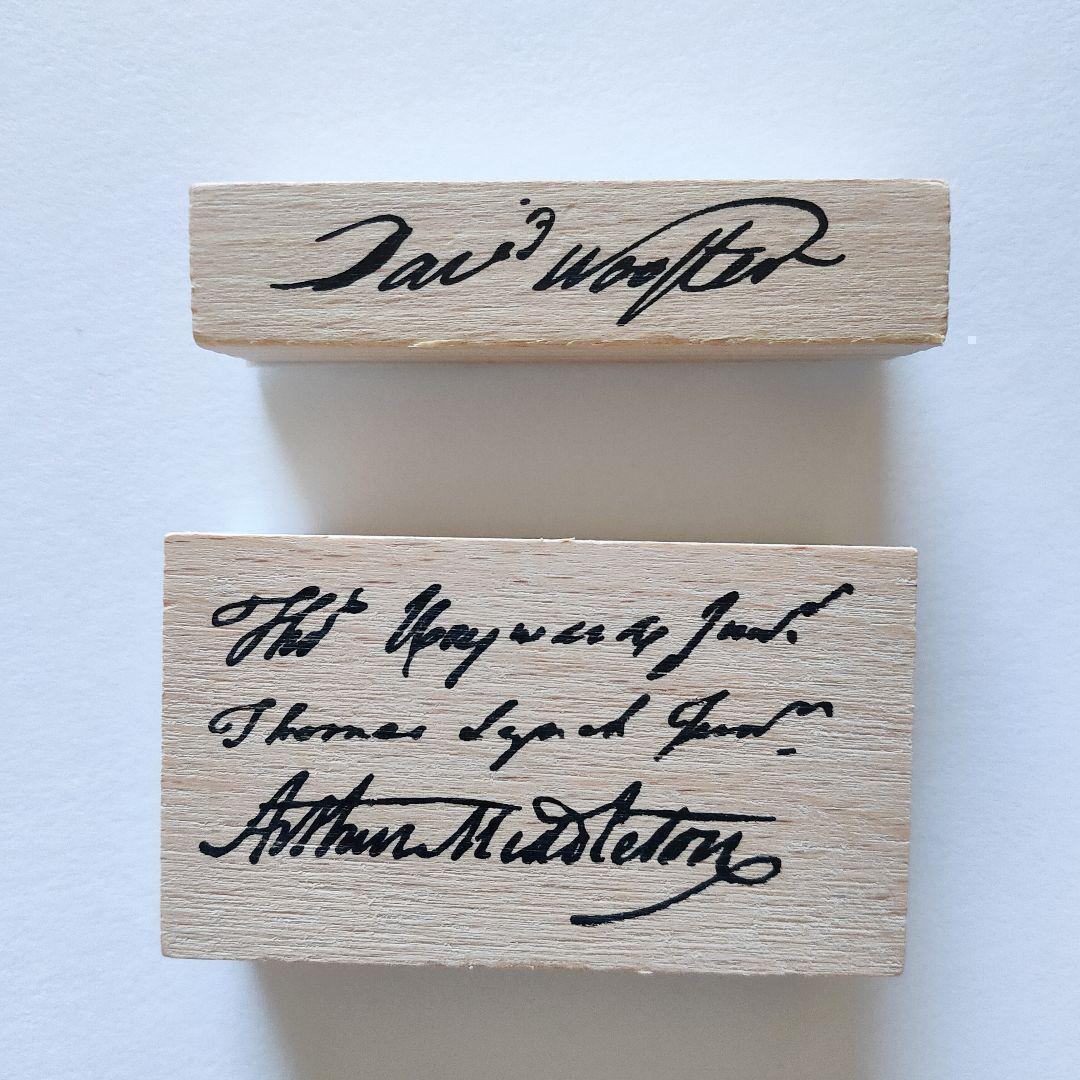 David Wooster
Thos Heyward Junr.
Thomas Lynch Junr.
Arthur Middleton